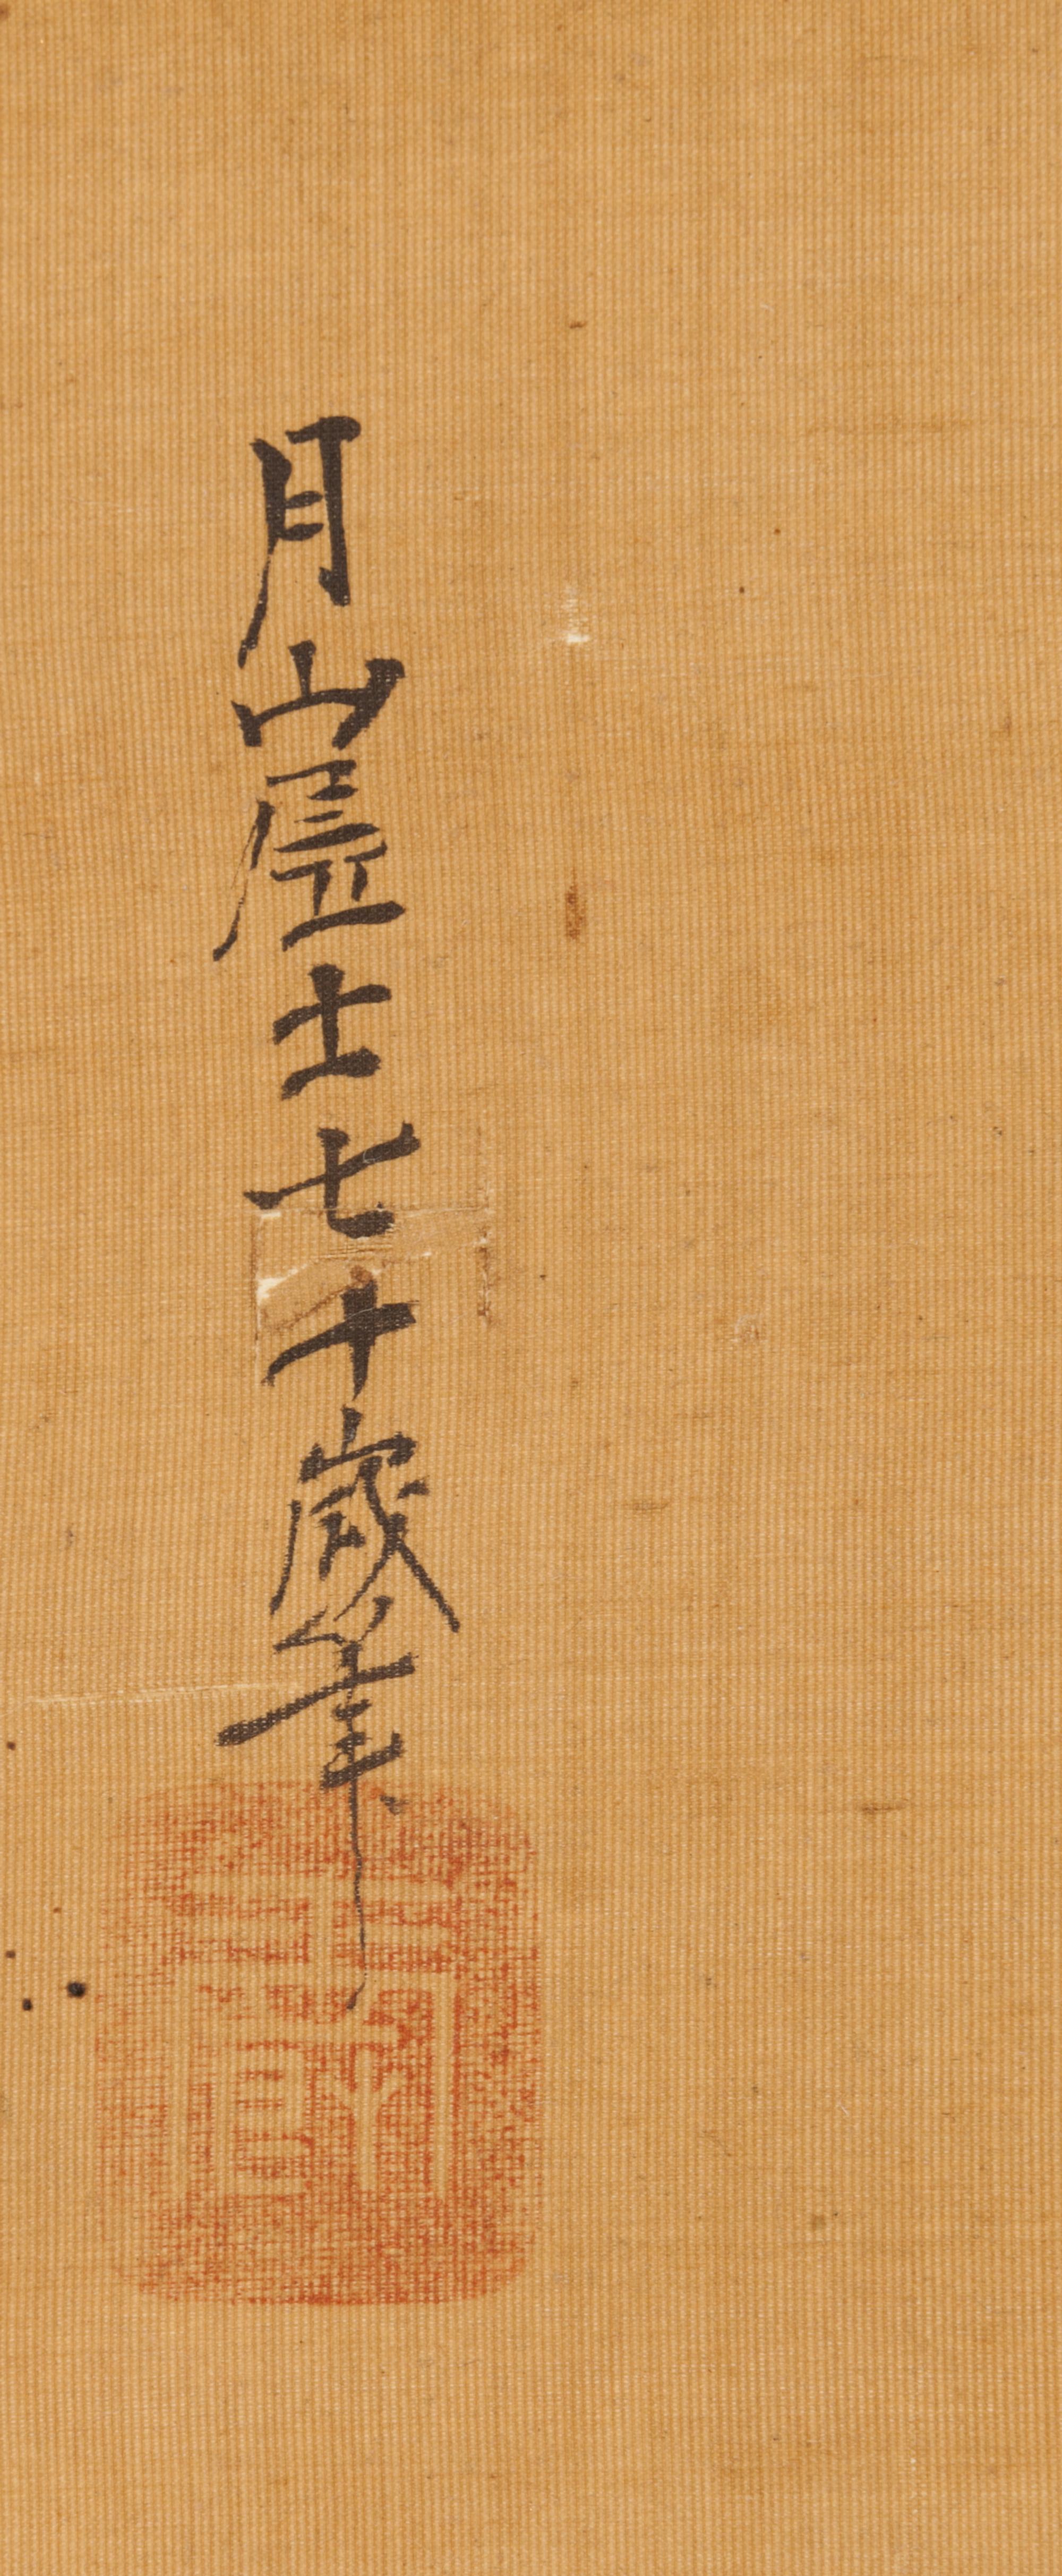 月山居士七十歳筆